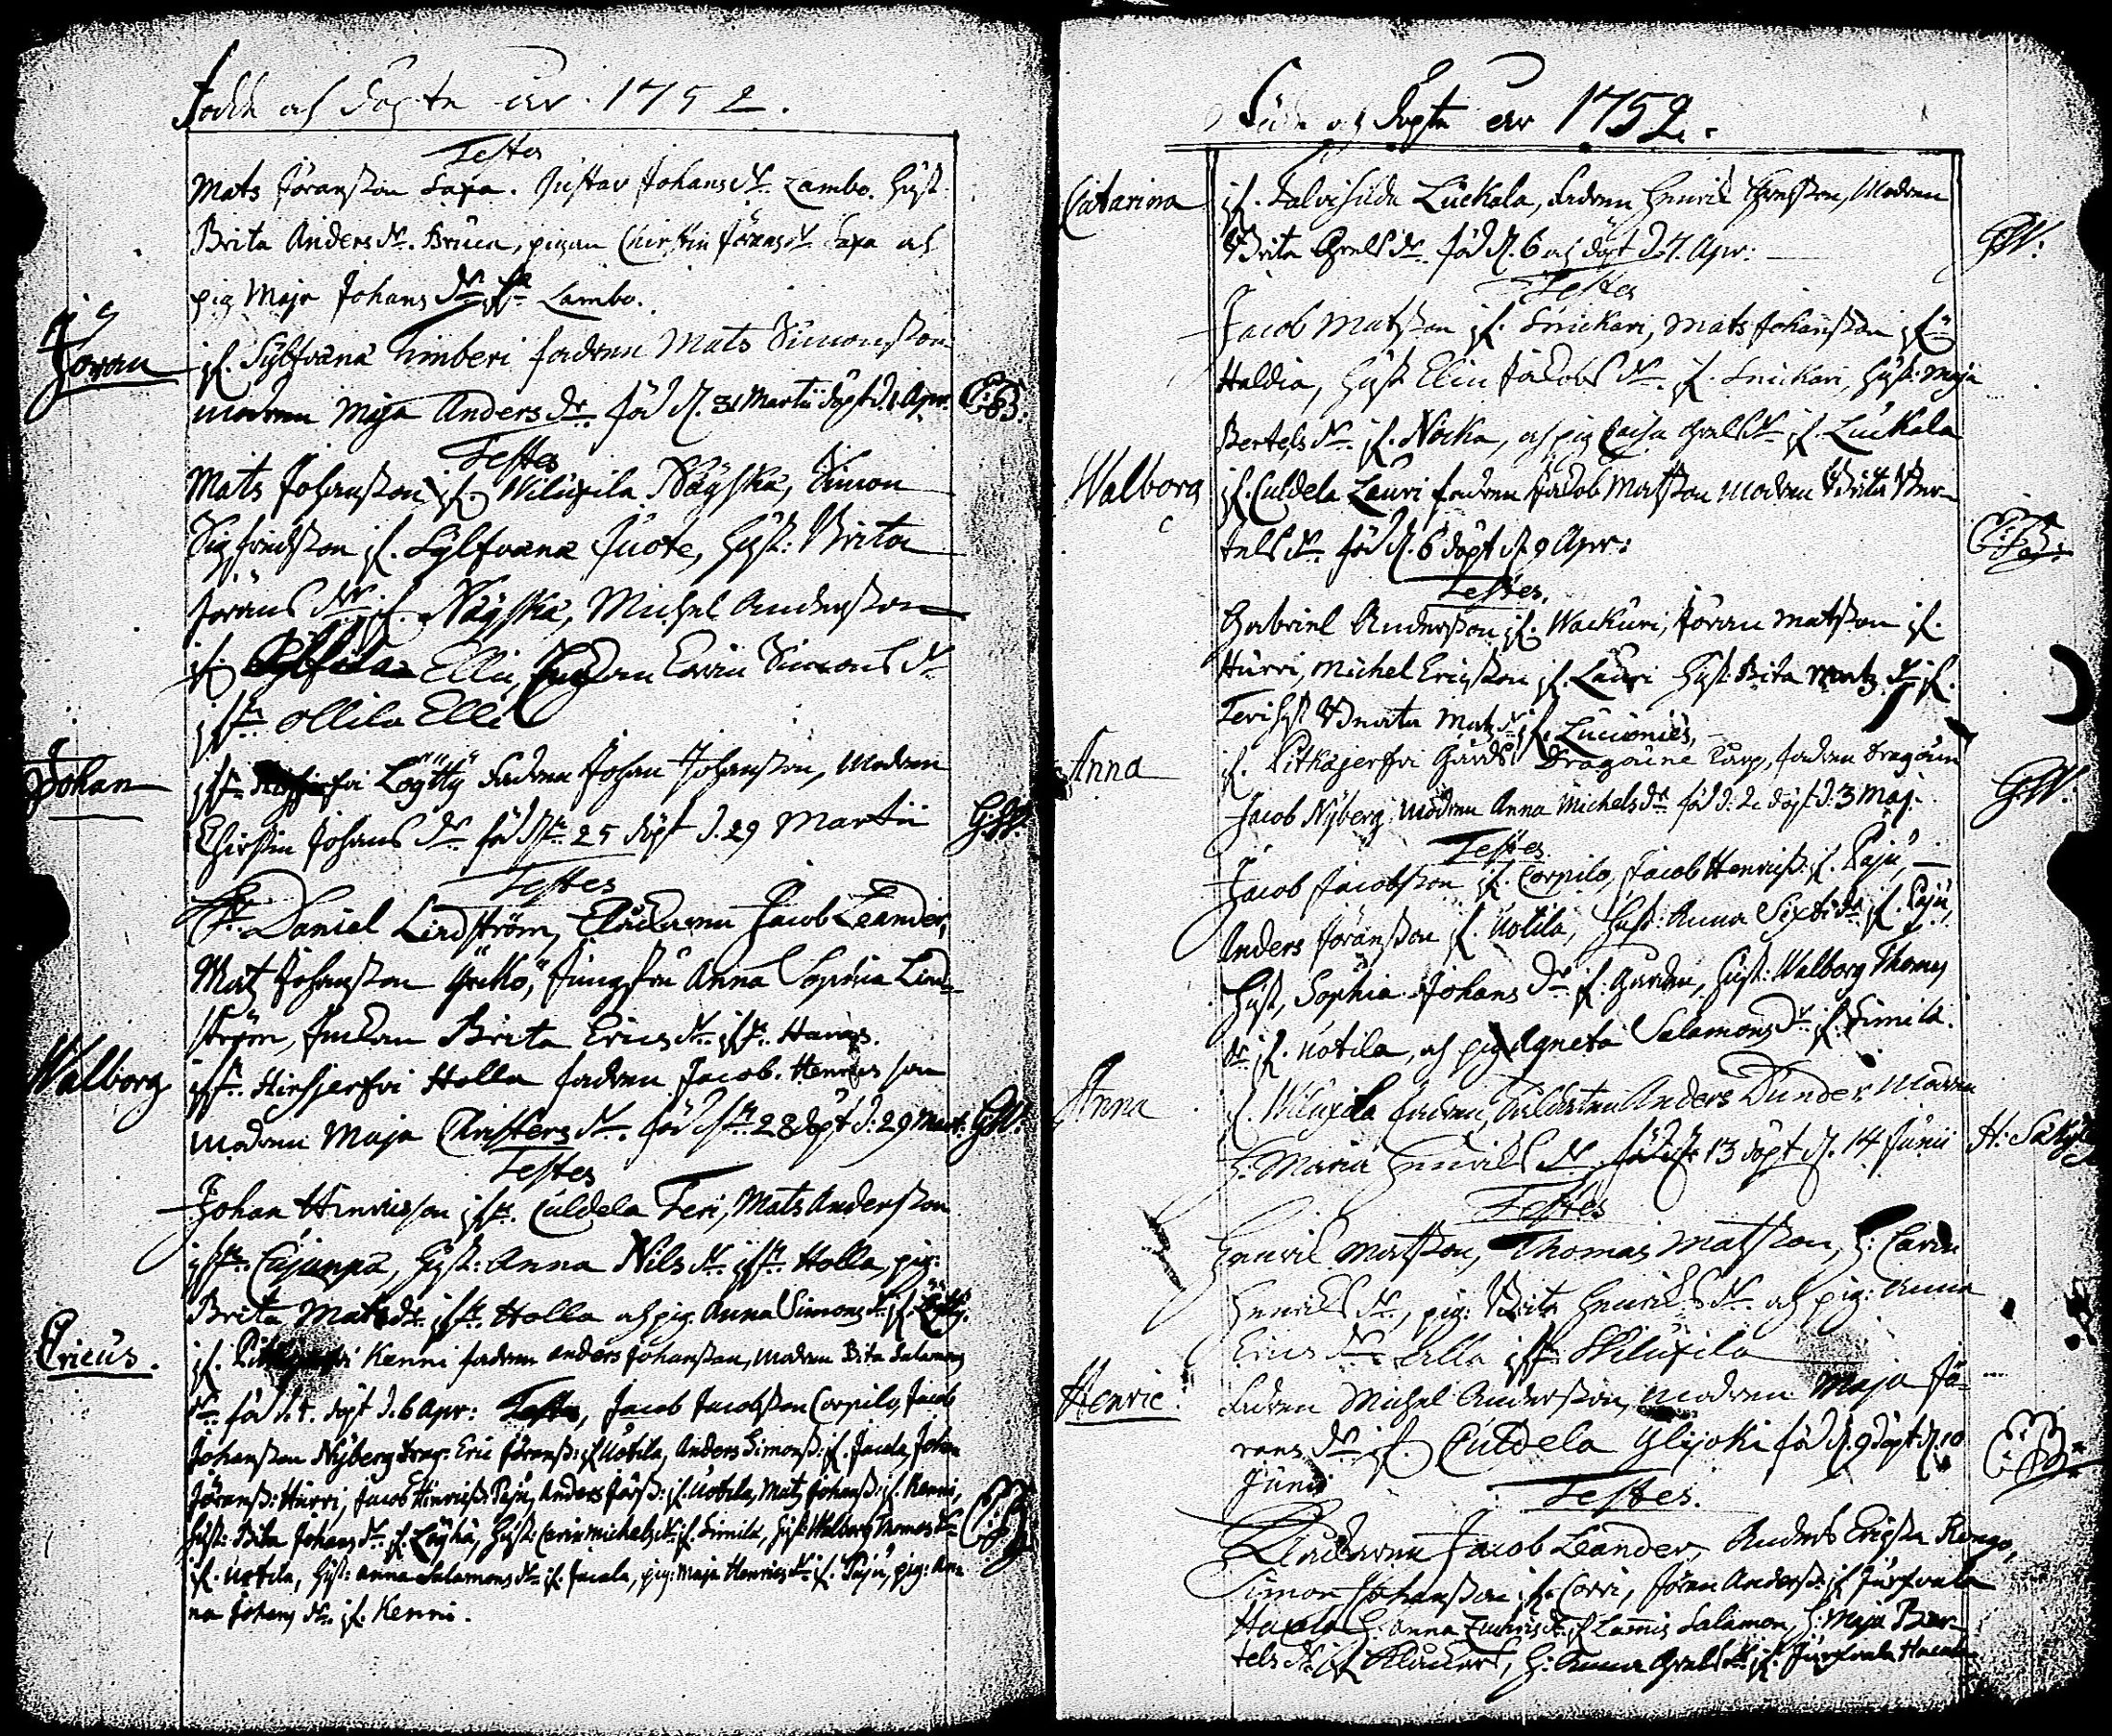 Födde och döpte åhr 1752.
Testes
Mats Jöransson Saxa. Gustav Johans dr Lambo. Hust.
Brita Anders dr. Bruca, pigan Chirstin Jörans dr Saxa och
pig Maja Johans dr Lambo.
Jöran
if. Sylfvänä Timberi fadren Mats Simonsson
modren Maja Anders dr. föd d. 31 Martii döpt d. 1 Apr.
C:B:
Testes
Mats Johansson if. Wiluxila Näyskä, Simon
Sigfridsson if. Sylfvänä Juote, Hust: Brita
Jörans dr. if. Näyskä, Michel Andersson
if. Elli, Carin Simons dr
if. Ollila Elli
Johan
Löytty fadren Johan Johansson, modren
Chirstin Johans dr föd d. 25 döpt d. 29 Martii
G:W:
Testes
Hr. Daniel Lindström, Clåckaren Jacob Leander,
Matz Johansson Yrckö, Jungfru Anna Sophia Lind-
ström, Enckan Brita Erics dr
Walborg
Hirsjerfvi Holla fadren Jacob Henricsson
modren Maja Christers dr. föd d. 28 döpt d: 29 Mart:
G:W:
Testes
Johan Hinricsson Culdela Teri, Mats Andersson
Cujanpä, Hust: Anna Nils dr Holla, pig:
Brita Mats dr Holla och pig. Anna Simons dr
Ericus.
if. Kenni fadren Anders Johansson, modren Brita Salamons
dr. föd d. 4. döpt d. 6 Apr: Testes, Jacob Jacobsson Corpilo, Jacob
Johansson Nyberg Eric Jöranss: if. Uotila, Anders Simonss: if. Jacala, Johan
Jöranss: Hurri, Jacob Hinricss: Paju, Anders Jörss: if. Uotila, Matz Johanss: if. Kenni,
Hust: Brita Johans dr if. Löyhä, Hust: Carin Michels dr if. Simila, Hust: Walborg Thomas dr
C:B:
if. Uotila, Hust: Anna Salamons dr if. Jacala, pig: Maja Henrics dr if. Paju, pig: An-
na Johans dr. if. Kenni.
Födde och döpte åhr 1752.
Catarina
if. Luckala, fadren Henric Grelsson, modren
Brita Grels dr. föd d. 6 och döpt d. 7. Apr:
G:W:
Testes
Jacob Matsson if. Snickari, Mats Johansson if.
Haldia, Hust Elin Jacobs dr. if. Snickari, Hust: Maja
Bertels dr if. Nocka, och pig Caisa Grels dr if. Luckala
Walborg
if. Culdela Lauri fadren Jacob Matsson modren Brita Ber-
tels dr föd d. 6 döpt d. 9 Apr:
C:B:
Testes.
Gabriel Andersson if. Wackuri, Jöran Matsson if.
Hurri, Michel Ericsson if. Lauri Hust: Brita Matz dr if.
Teri Hust Matz dr if.
Anna
if. Pitkäjerfvi Gårds Dragoune Torp, fadren Dragoun
Jacob Nyberg modren Anna Michels dr föd d: 2 döpt d: 3 Maj:
G:W:
Testes
Jacob Jacobsson if. Corpilo, Jacob Henricss: if. Paju,
Anders Jöransson if. Uotila, Hust: Anna Sixti dr if. Paju,
Hust, Sophia Johans dr if. Hust: Walborg Thomas
dr if. Uotila, och pig Agneta Salamons dr if. Simila.
Anna
if. Wiluxila fadren, Soldaten Anders Dunder modren
H: Maria Henrics dr föd d. 13 döpt d. 14 Junii
H: Säkylä
Testes
Henric Matsson, Thomas Matsson, H: Carin
Henrics dr, pig: Brita Henrics dr och pig: Anna
Erics dr alla if. Wiluxila
Henric.
fadren Michel Andersson, modren Maja Jö-
rans dr if. Culdela Ylijoki föd d. 9 döpt d. 10
Junii
C:B:
Testes.
Clåckaren Jacob Leander, Anders Ericsson
Simon Johansson if. Corri, Jöran Anderss: if. Jurfvala
H: Anna if. Salamon, H: Maja Ber-
tels dr if. H: Anna Grels dr if. Jurfvala